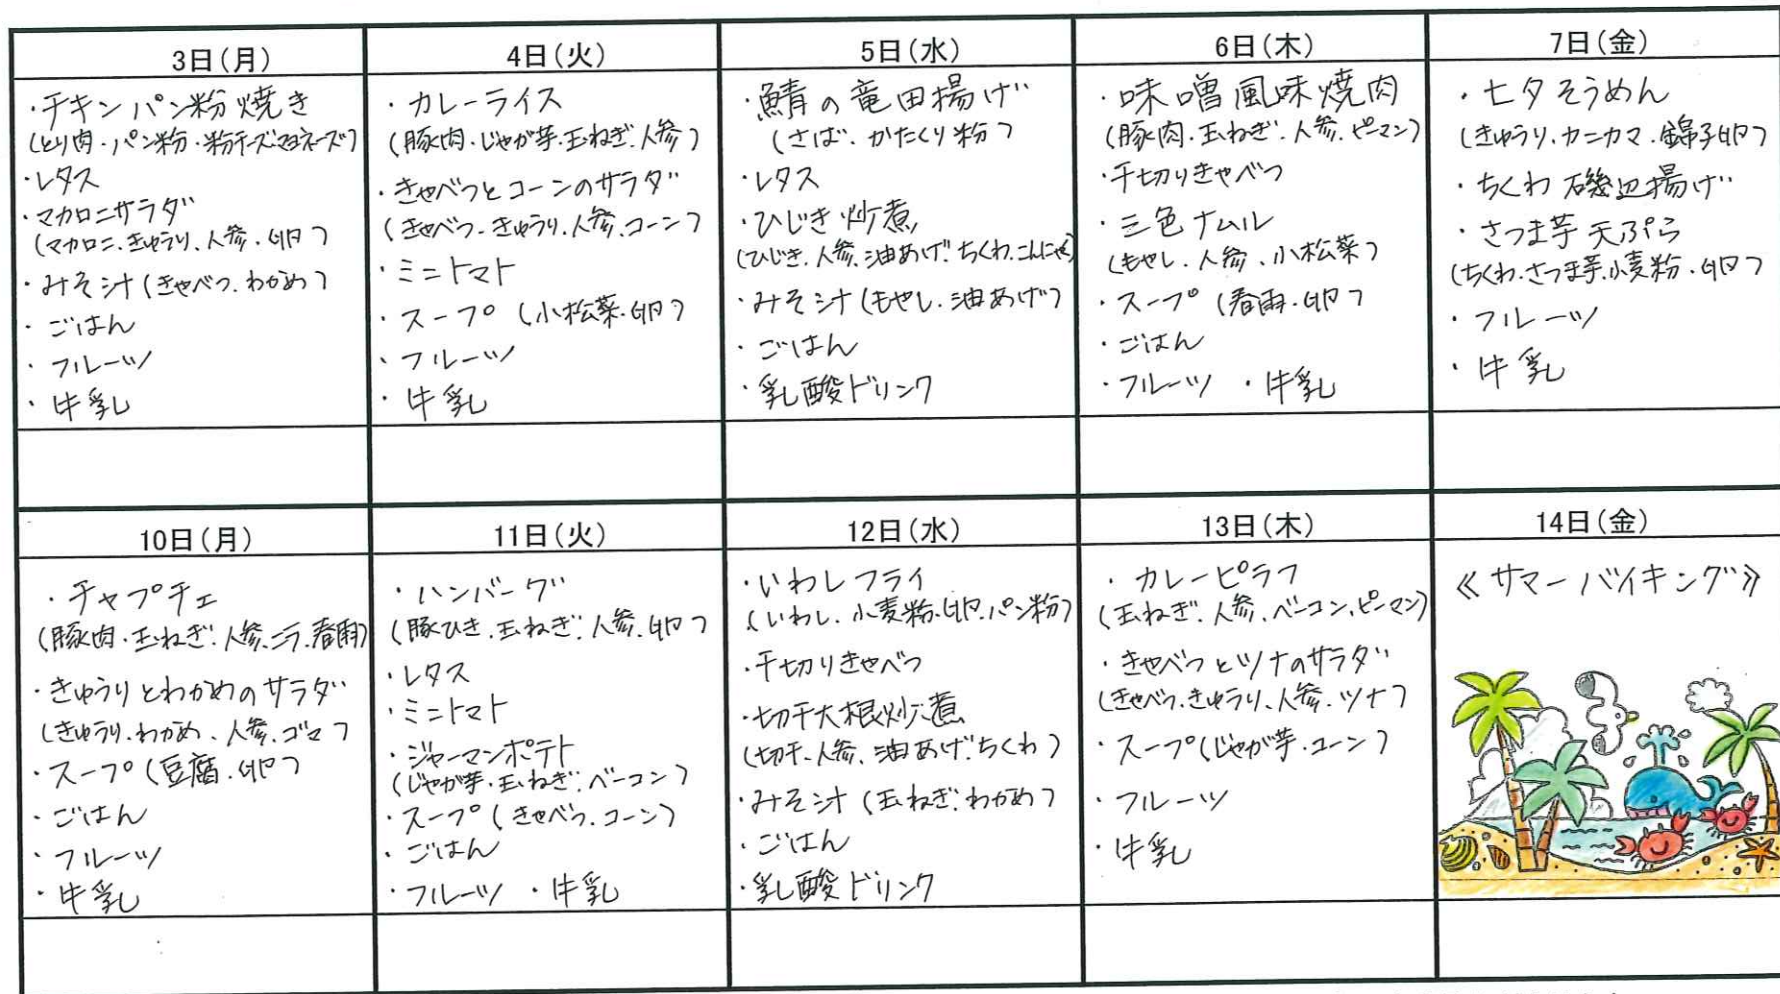 3日(月)
・チキンパン粉焼き
(とり肉・パン粉・粉チーズ・マヨネーズ)
・レタス
・マカロニサラダ
(マカロニ、きゅうり、人参、卵)
・みそ汁(きゃべつ、わかめ)
・ごはん
・フルーツ
・牛乳
4日(火)
・カレーライス
(豚肉・じゃが芋・玉ねぎ・人参)
・きゃべつとコーンのサラダ
(きゃべつ、きゅうり、人参、コーン)
・ミニトマト
・スープ(小松菜・卵)
・フルーツ
・牛乳
5日(水)
・鯖の竜田揚げ
(さば、かたくり粉)
・レタス
・ひじき炒煮
(ひじき、人参、油あげ、ちくわ、こんにゃく)
・みそ汁(もやし、油あげ)
・ごはん
・乳酸ドリンク
6日(木)
・味噌風味焼肉
(豚肉・玉ねぎ・人参・ピーマン)
・千切りきゃべつ
・三色ナムル
(もやし、人参、小松菜)
・スープ(春雨・卵)
・ごはん
・フルーツ ・牛乳
7日(金)
・七夕そうめん
(きゅうり、カニカマ、錦子卵)
・ちくわ磯辺揚げ
・さつま芋天ぷら
(ちくわ、さつま芋、小麦粉、卵)
・フルーツ
・牛乳
10日(月)
・チャプチェ
(豚肉・玉ねぎ・人参・ニラ・春雨)
・きゅうりとわかめのサラダ
(きゅうり、わかめ、人参、ゴマ)
・スープ(豆腐・卵)
・ごはん
・フルーツ
・牛乳
11日(火)
・ハンバーグ
(豚ひき、玉ねぎ、人参、卵)
・レタス
・ミニトマト
・ジャーマンポテト
(じゃが芋・玉ねぎ・ベーコン)
・スープ(きゃべつ、コーン)
・ごはん
・フルーツ ・牛乳
12日(水)
・いわしフライ
(いわし、小麦粉、卵、パン粉)
・千切りきゃべつ
・切干大根炒煮
(切干、人参、油あげ、ちくわ)
・みそ汁(玉ねぎ、わかめ)
・ごはん
・乳酸ドリンク
13日(木)
・カレーピラフ
(玉ねぎ、人参、ベーコン、ピーマン)
・きゃべつとツナのサラダ
(きゃべつ、きゅうり、人参、ツナ)
・スープ(じゃが芋・コーン)
・フルーツ
・牛乳
14日(金)
《サマーバイキング》